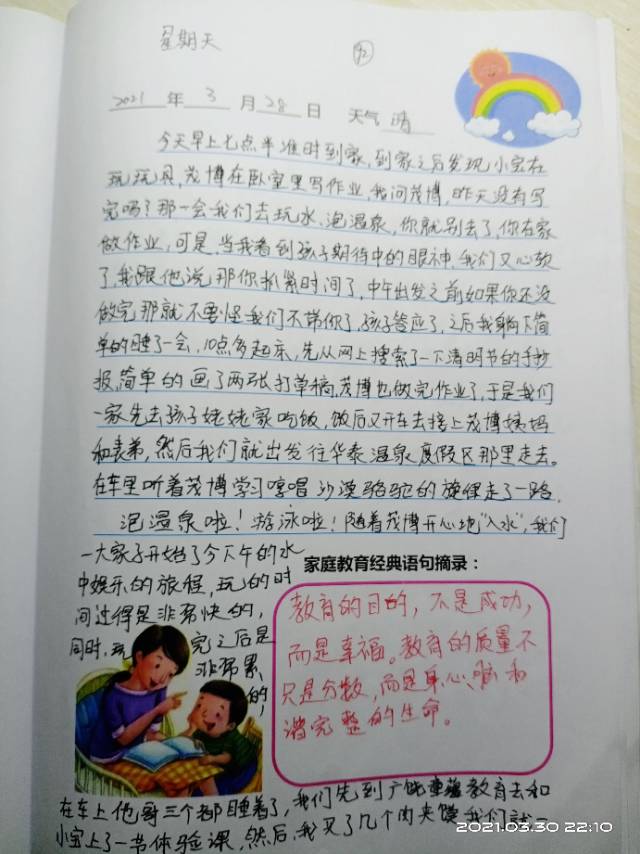 星期天
92
2021 年 3 月 28 日 天气 晴
今天早上七点半准时到家,到家之后发现小宝在
玩玩具,茂博在卧室里写作业,我问茂博,昨天没有写
完吗?那一会我们去玩水、泡温泉,你就别去了,你在家
做作业,可是,当我看到孩子期待中的眼神,我们又心软
了,我跟他说那你抓紧时间了,中午出发之前如果你还没
做完那就不要怪我们不带你了,孩子答应了,之后我躺下简
单的睡了一会,10点多起床,先从网上搜索了一下清明书的手抄
报,简单的画了两张打草稿,茂博也做完作业了,于是我们
一家先去孩子姥姥家吃饭,饭后又开车去接上茂博姨妈
和表弟,然后我们就出发往华泰温泉度假区那里走去。
在车里听着茂博学习哼唱沙漠骆驼的旋律走了一路.
泡温泉啦!游泳啦!随着茂博开心地"入水",我们
一大家子开始了今下午的水
中娱乐的旅程,玩的时
间过得是非常快的,
同时,玩完之后是
非常累
的,
家庭教育经典语句摘录:
教育的目的,不是成功,
而是幸福。教育的质量不
只是分数,而是身心、脑和
谐完整的生命。
在车上他哥三个都睡着了,我们先到广饶 教育去和
小宝上了一节体验课,然后,我买了几个肉夹馍,我们就一
2021.03.30 22:10